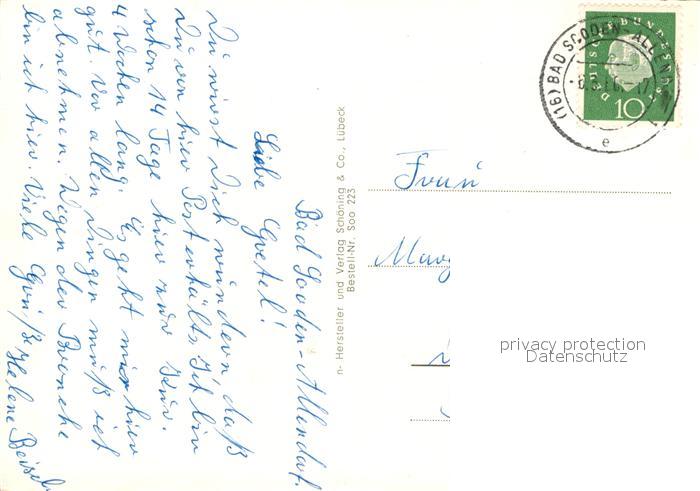 Bad Sooden-Allendorf.
Liebe Gretel!
Du wirst Dich wundern daß
Du von hier Post erhälts. Ich bin
schon 14 Tage hier zur Kur.
4 Wochen lang. Es geht mir hier
gut. Vor allen Dingen muß ich
abnehmen. Wegen der Bronche
bin ich hier. Viele Grüße Helene
n- Hersteller und Verlag Schöning & Co., Lübeck
Bestell-Nr. Soo 223
(16) BAD SOODEN-ALLENDORF
e
DEUTSCHE BUNDESPOST
10
Frau
privacy protection
Datenschutz